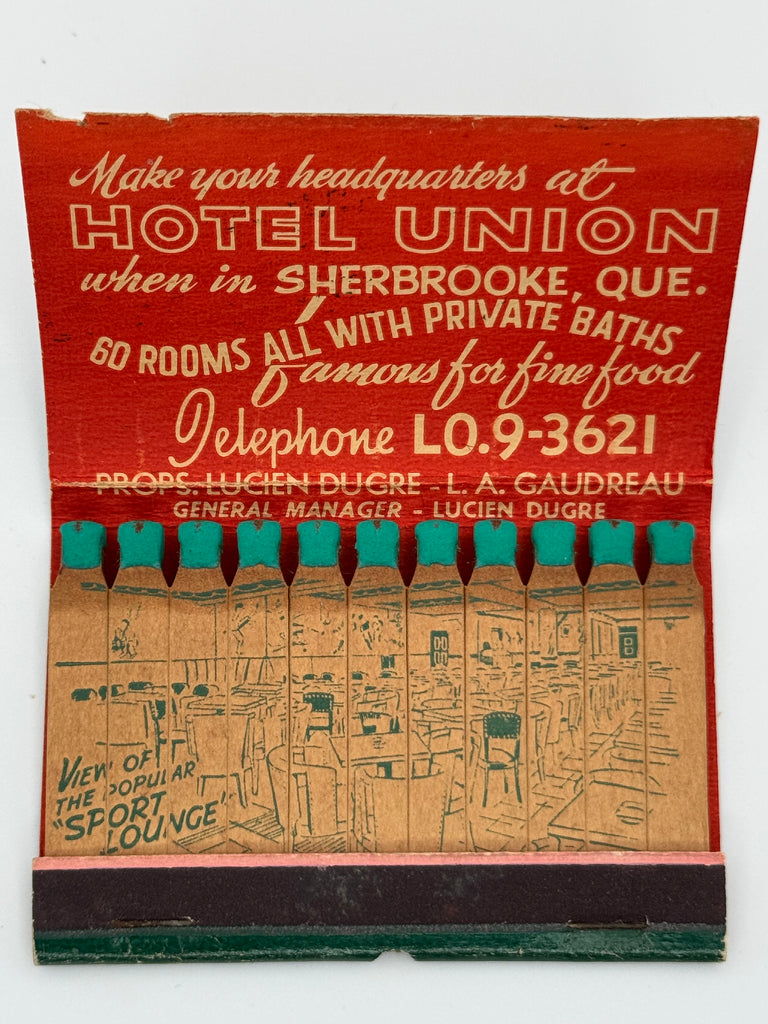 Make your headquarters at
HOTEL UNION
when in SHERBROOKE, QUE.
60 ROOMS ALL WITH PRIVATE BATHS
Famous for fine food
Telephone LO.9-3621
PROPS. LUCIEN DUGRE - L. A. GAUDREAU
GENERAL MANAGER - LUCIEN DUGRE
VIEW OF
THE POPULAR
"SPORT
LOUNGE"